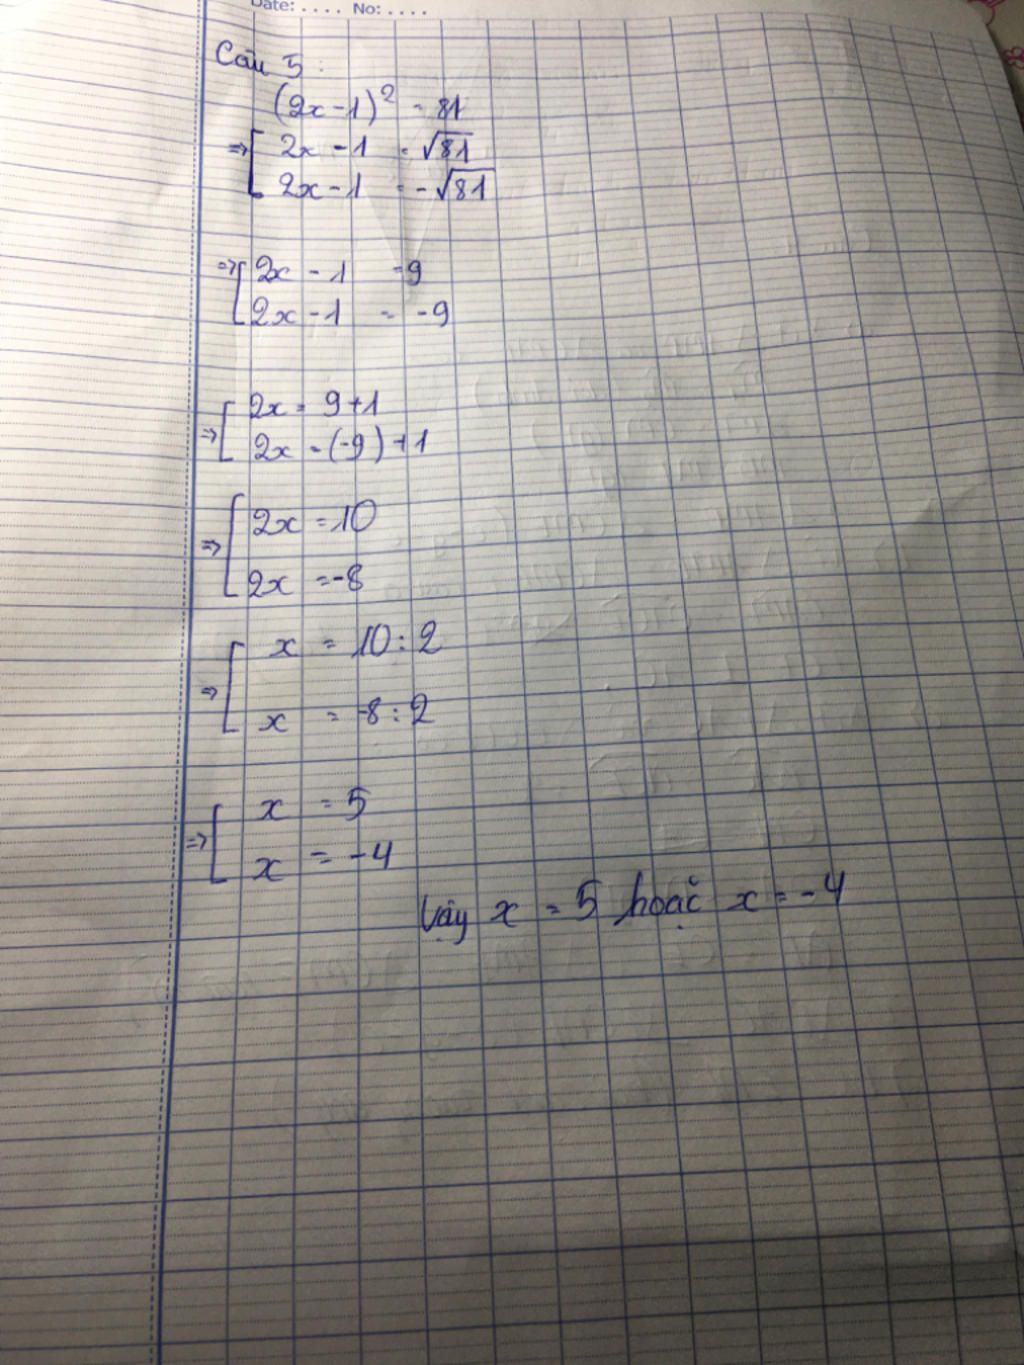 Date: . . . . No: . . . .
Câu 5 :
(2x - 1)² = 81
=> [ 2x - 1 = √81
2x - 1 = - √81
=> [ 2x - 1 = 9
2x - 1 = - 9
=> [ 2x = 9 + 1
2x = (-9) + 1
=> [ 2x = 10
2x = -8
=> [ x = 10 : 2
x = -8 : 2
=> [ x = 5
x = -4
Vậy x = 5 hoặc x = -4